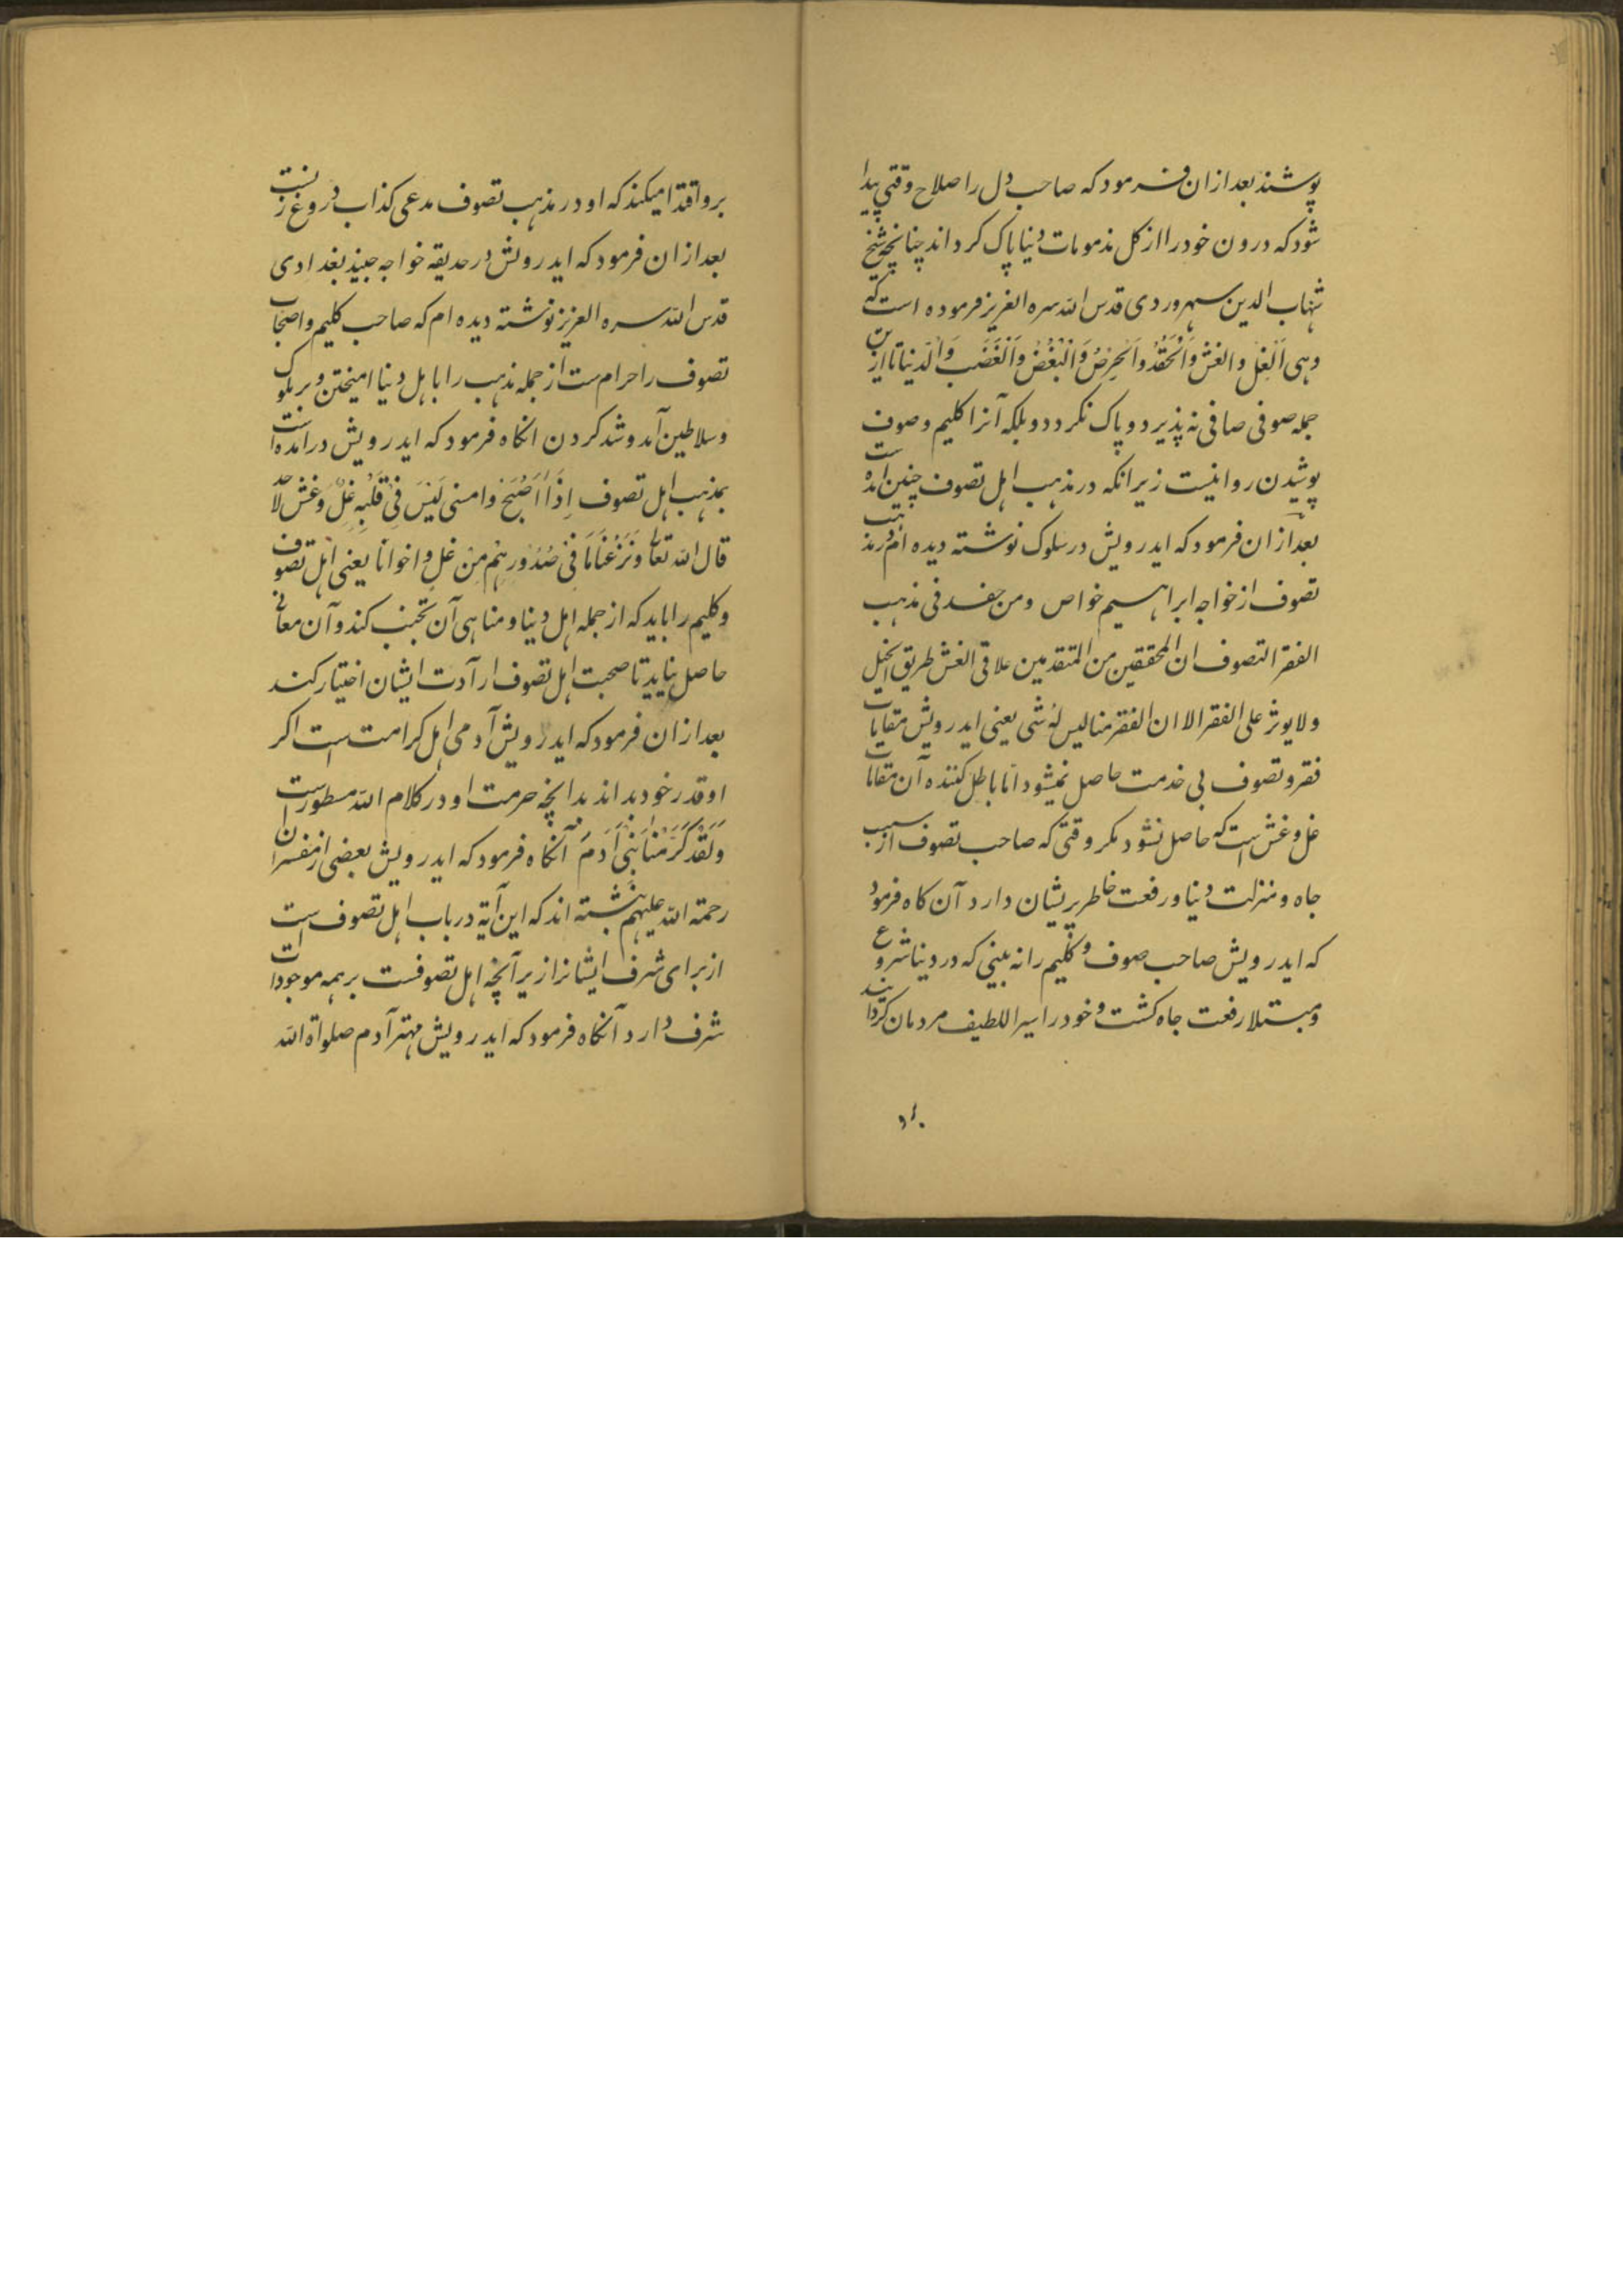 پوشند بعد ازان فرمود که صاحب دل را صلاح وقتی پیدا
شود که درون خود را از کل مذمومات دنیا پاک کرداند چنانچه شیخ
شهاب الدین سهروردی قدس الله سره العزیز فرموده است که
وهی اَلْغِلُ والغش وَالْحَقْدُ وَالْحِرْصُ وَالْبُغْضُ وَالْغَضَب وَالدنیا تا ازین
جمله صوفی صافی نه پذیرد و پاک نکردد و بلکه آنرا کلیم وصوف
پوشیدن روا نیست زیرانکه در مذهب اهل تصوف چنین آمده است
بعد ازان فرمود که ایدرویش در سلوک نوشته دیده ام در مذهب
تصوف از خواجه ابراهیم خواص ومن فی مذهب
الفقر التصوف ان المحققین من المتقدمین علاقی الغش طریق
ولا یوثر علی الفقر الا ان الفقر منا لیس له شی یعنی ایدرویش مقامات
فقر و تصوف بی خدمت حاصل نمیشود اما باطل کننده آن مقامات
غل وغش است که حاصل نشود مکر وقتی که صاحب تصوف از سبب
جاه و منزلت دنیا و رفعت خاطر پریشان دارد آن کاه فرمود
که ایدرویش صاحب صوف و کلیم را نه بینی که در دنیا شروع
ومبتلا رفعت جاه کشت و خود را سیر اللطیف مردمان کردانید
برو اقتدا میکند که او در مذهب تصوف مدعی کذاب دروغ زنست
بعد ازان فرمود که ایدرویش در حدیقه خواجه جنید بغدادی
قدس الله سره العزیز نوشته دیده ام که صاحب کلیم و اصحاب
تصوف را حرام ست از جمله مذهب را با اهل دنیا امیختن و بر ملوک
وسلاطین آمد و شد کردن انکاه فرمود که ایدرویش در آمده است
بمذهب اهل تصوف اِذَا اَصْبَحَ وامسی لَیْسَ فِیْ قَلْبِهِ غِلٌ وغش لاحد
قال الله تعالی وَنَزَعْنَا مَا فِیْ صُدُورِهِمْ مِنْ غلٍ اخوانا یعنی اهل تصوف
وکلیم را باید که از جمله اهل دنیا و مناهی آن تجنب کند و آن معانی
حاصل نیاید تا صحبت اهل تصوف ارآدت ایشان اختیار کند
بعد ازان فرمود که ایدرویش آدمی اهل کرامت است اکر
او قدر خود بداند بدانچه حرمت او در کلام الله مسطور است
وَلَقَدْ کَرَّمْنَا بَنِیْ اَدَمَ آنکاه فرمود که ایدرویش بعضی از مفسران
رحمة الله علیهم نبشته اند که این آیة در باب اهل تصوف است
از برای شرف ایشانرا زیر آنچه اهل تصوفست بر همه موجودات
شرف دارد آنکاه فرمود که ایدرویش مهتر آدم صلواة الله